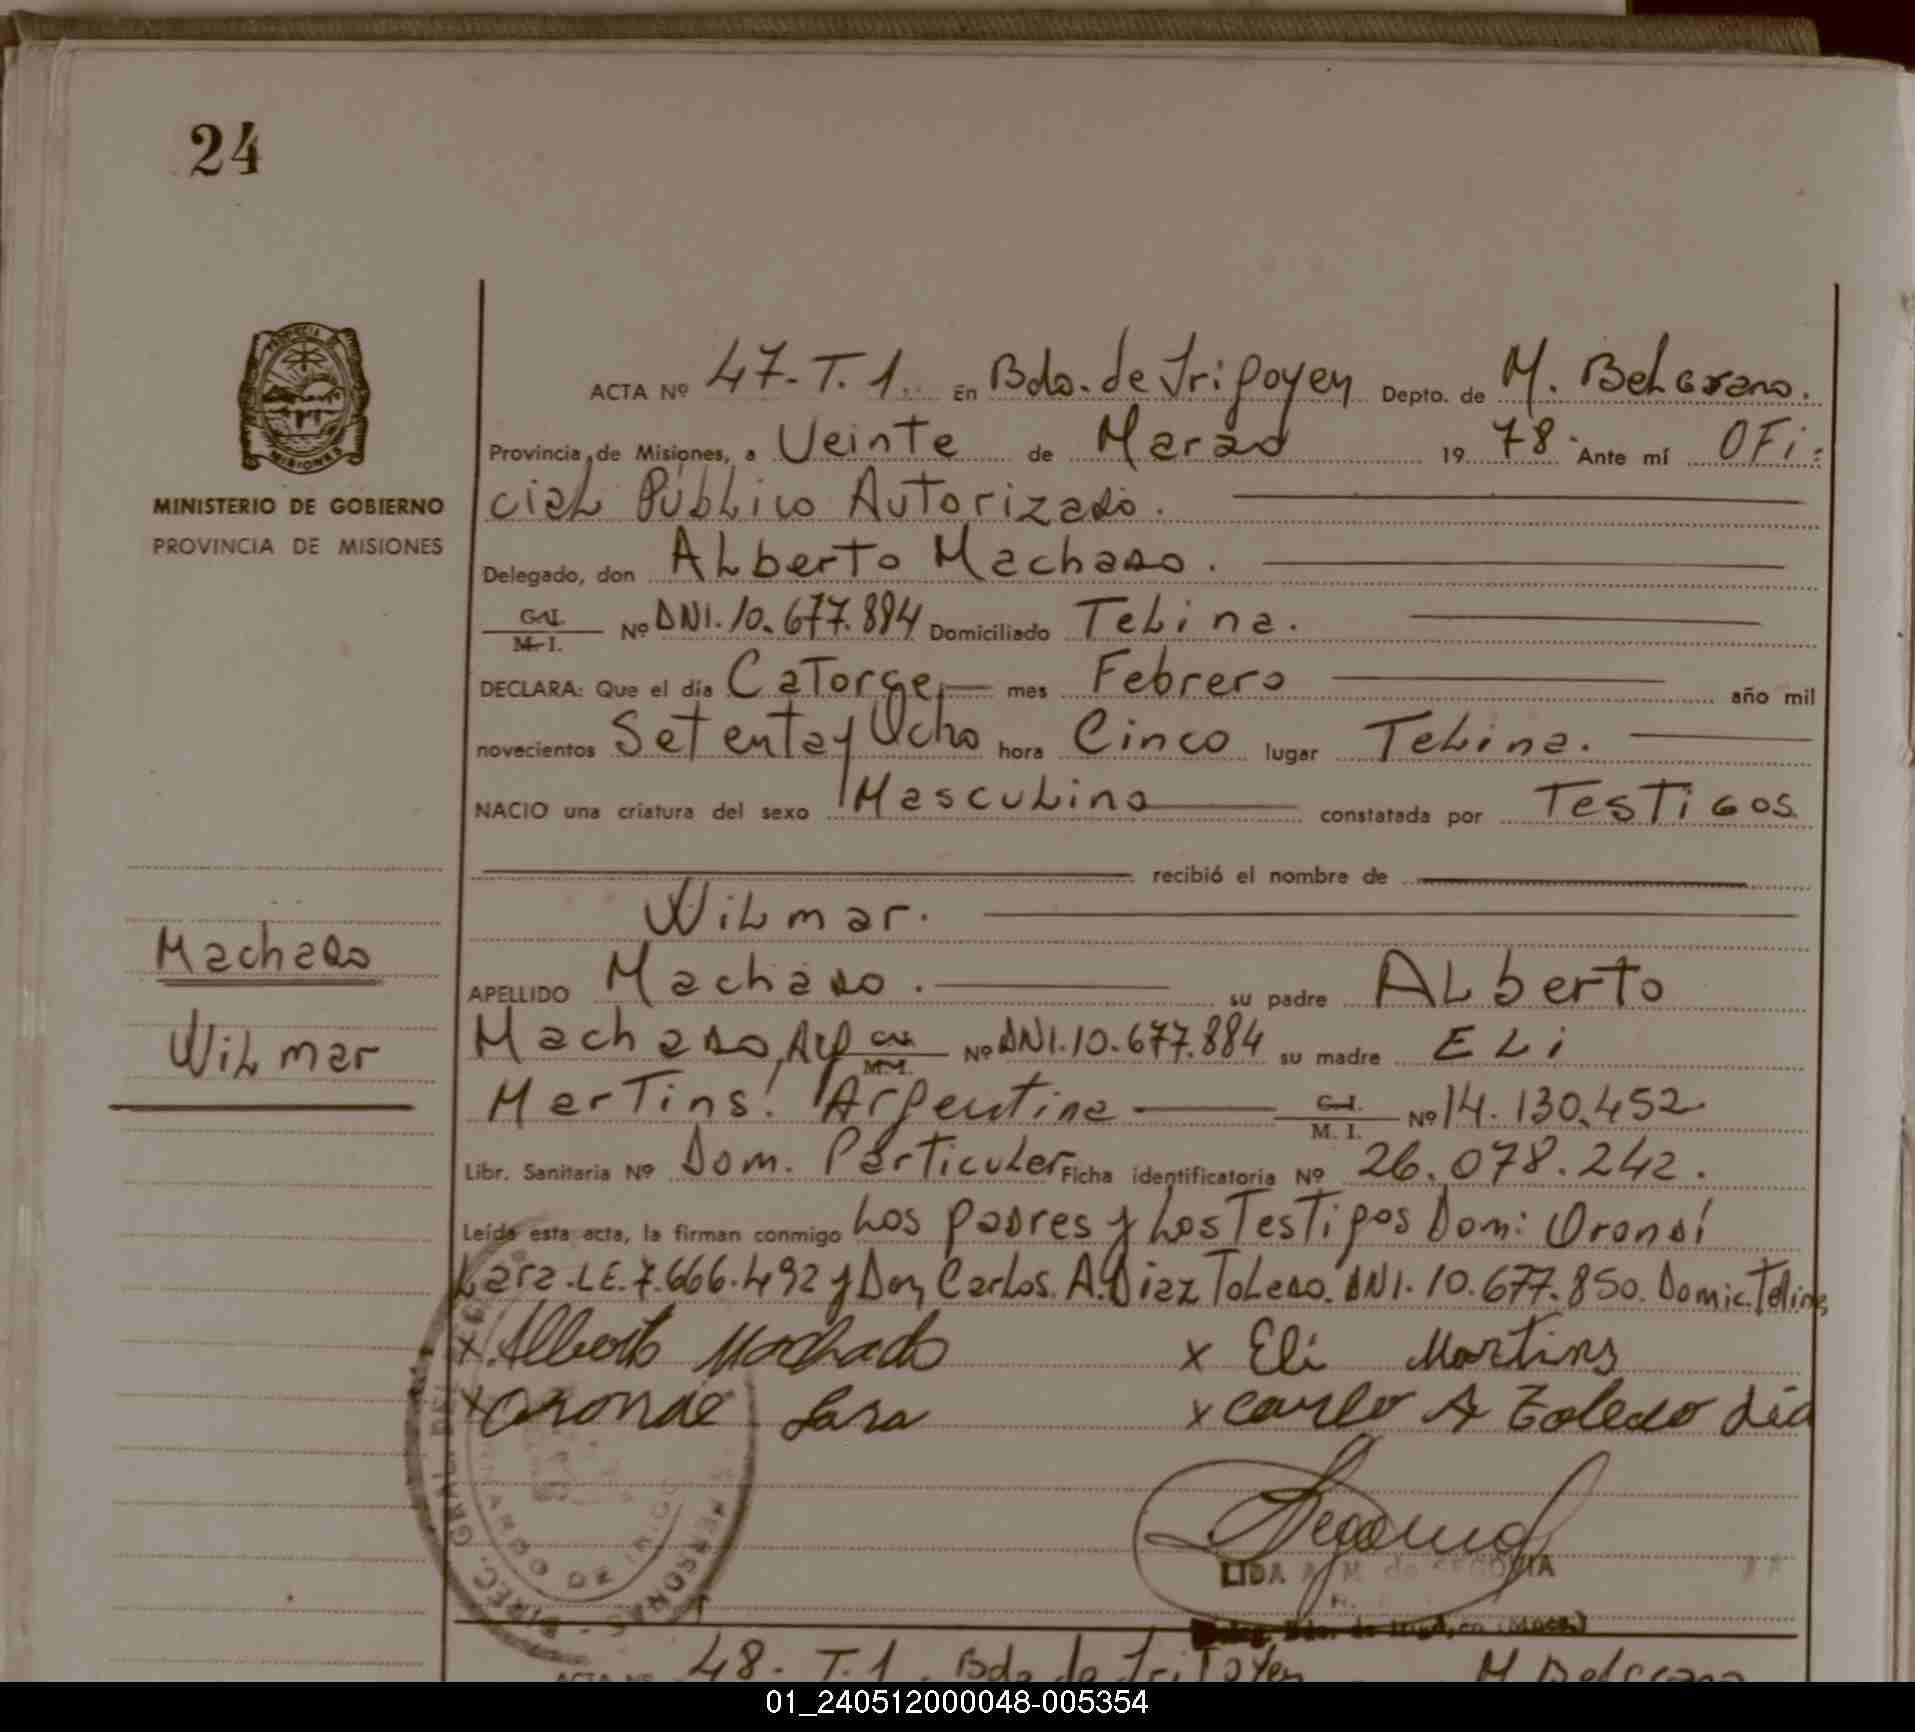 24
MINISTERIO DE GOBIERNO
PROVINCIA DE MISIONES
ACTA Nº 47-T.1. En Bdo. de Irigoyen Depto. de M. Belgrano.
Provincia de Misiones, a Veinte de Marzo 1978 Ante mí Ofi=
cial Público Autorizado.
Delegado, don Alberto Machado.
C.I. M.I. Nº DNI. 10.677.884 Domiciliado Telina.
DECLARA: Que el día Catorce, mes Febrero año mil
novecientos Setenta y Ocho hora Cinco lugar Telina.
NACIO una criatura del sexo Masculino constatada por Testigos
recibió el nombre de
Wilmar.
Machado
Wilmar
APELLIDO Machado. su padre Alberto
Machado, M.I. Nº DNI. 10.677.884 su madre Eli
Martins. Argentina C.I. M. I. Nº 14.130.452
Libr. Sanitaria Nº Dom. Particular Ficha identificatoria Nº 26.078.242.
Leída esta acta, la firman conmigo Los padres y Los Testigos Dom: Orondí
Lara. LE. 7.666.492 y Don Carlos. A. Diaz Toledo. DNI. 10.677.850. Domic. Telina
x Alberto Machado x Eli Martins
x Lara x Carlo A Toledo dia
LIDA A. M. de SEGOVIA
DIREC. GRAL. DEL PERSONAS
48- T.1. Bdo de Irigoyen M Belgrano
01_240512000048-005354